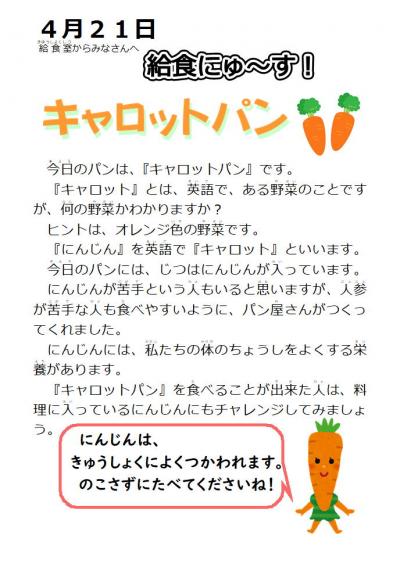 ４月２１日
給食室からみなさんへ
給食にゅ～す！
キャロットパン
今日のパンは、『キャロットパン』です。
『キャロット』とは、英語で、ある野菜のことです
が、何の野菜かわかりますか？
ヒントは、オレンジ色の野菜です。
『にんじん』を英語で『キャロット』といいます。
今日のパンには、じつはにんじんが入っています。
にんじんが苦手という人もいると思いますが、人参
が苦手な人も食べやすいように、パン屋さんがつくっ
てくれました。
にんじんには、私たちの体のちょうしをよくする栄
養があります。
『キャロットパン』を食べることが出来た人は、料
理に入っているにんじんにもチャレンジしてみましょ
う。
にんじんは、
きゅうしょくによくつかわれます。
のこさずにたべてくださいね！